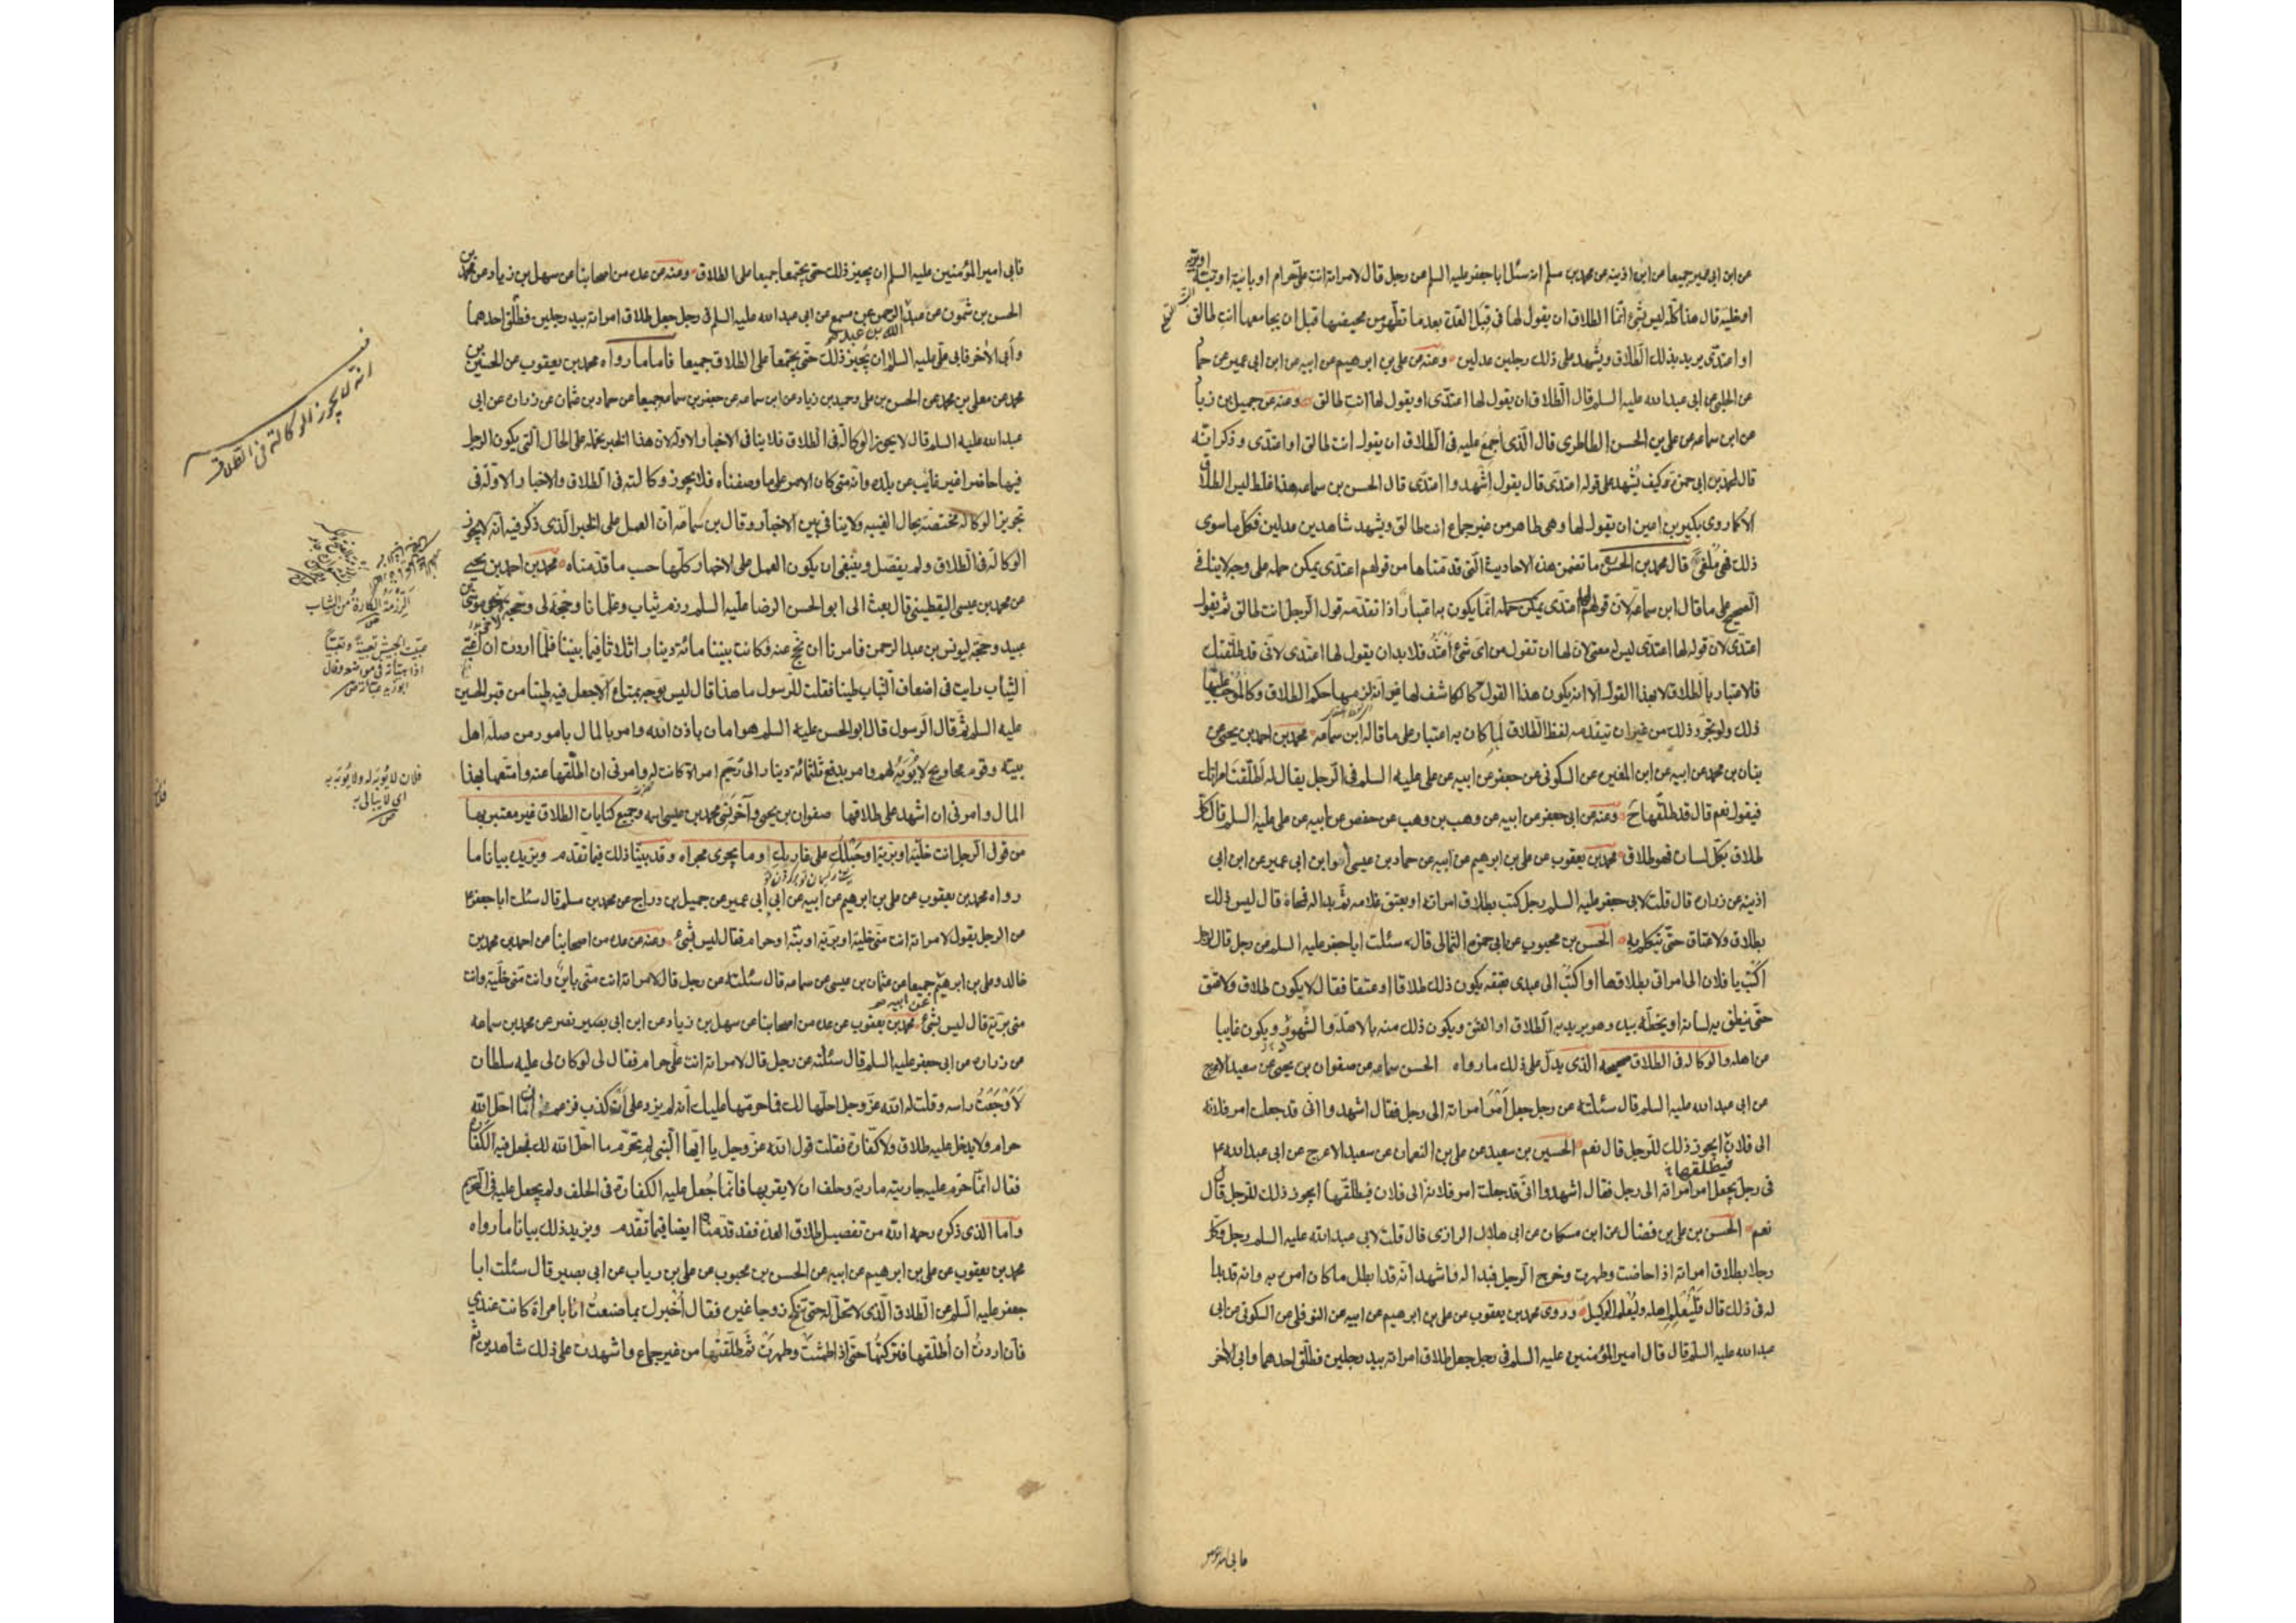 عن ابن ابى عمير جميعا عن ابن اذينه عن محمد بن مسلم انه سئل ابا جعفر عليه السلم عن رجل قال لامراته انت على حرام او باينة او بتة او برية
او خلية قال هذا كله ليس بشئ انما الطلاق ان يقول لها فى قبل العدة بعد ما تطهر من محيضها قبل ان يجامعها انت طالق
او اعتدى يريد بذلك الطلاق ويشهد على ذلك رجلين عدلين ومنه عن على بن ابرهيم عن ابيه عن ابن ابى عمير عن حماد
عن الحلبى عن ابى عبد الله عليه السلم قال الطلاق ان يقول لها اعتدى او يقول لها انت طالق ومنه عن حميد بن زياد
عن ابن سماعه عن على بن الحسن الطاطرى قال الذى اجمع عليه فى الطلاق ان يقول انت طالق او اعتدى وذكر انه
قال لمحمد بن ابى حمزة كيف يشهد على قوله اعتدى قال يقول اشهدوا اعتدى قال الحسن بن سماعه هذا غلط ليس الطلاق
الا كما روى بكير بن اعين ان يقول لها وهى طاهر من غير جماع انت طالق ويشهد شاهدين عدلين فكل ما سوى
ذلك فهى ملغى قال محمد بن الحسن ما تضمن هذه الاحاديث التى قدمناها من قولهم اعتدى يمكن حمله على وجه لا ينافى
الصحيح على ما قال ابن سماعه لان قولهم لها اعتدى يمكن حمله انما يكون به اعتبار اذا تقدمه قول الرجل انت طالق ثم يقول
اعتدى لان قوله لها اعتدى ليس له معنى لان لها ان تقول من اى شئ اعتد فلا بد ان يقول لها اعتدى لانى قد طلقتك
فالاعتبار بالطلاق لا بهذا القول الا انه يكون هذا القول كالكاشف لها عن انه لزمها حكم الطلاق وكالموجب عليها
ذلك ولو تجرد ذلك من غير ان يتقدمه لفظ الطلاق لما كان به اعتبار على ما قاله ابن سماعه محمد بن احمد بن يحيى عن
بنان بن محمد عن ابيه عن ابن المغيره عن السكونى عن جعفر عن ابيه عن على عليه السلم فى الرجل يقال له اطلقت امراتك
فيقول نعم قال قد طلقها ح ومنه عن ابى جعفر عن ابيه عن وهب بن وهب عن حفص عن ابيه عن على عليه السلم قال كل
طلاق بكل لسان فهو طلاق محمد بن يعقوب عن على بن ابرهيم عن ابيه عن حماد بن عيسى او ابن ابى عمير عن ابن
اذينه عن زراره قال قلت لابى جعفر عليه السلم رجل كتب بطلاق امراته او بعتق غلامه ثم بدا له فمحاه قال ليس ذلك
بطلاق ولا عتاق حتى يتكلم به الحسن بن محبوب عن ابى حمزه الثمالى قال سئلت ابا جعفر عليه السلم عن رجل قال لرجل
اكتب يا فلان الى امراتى بطلاقها او اكتب الى عبدى بعتقه يكون ذلك طلاقا او عتقا فقال لا يكون طلاق ولا عتق
حتى ينطق به لسانه او يخطه بيده وهو يريد به الطلاق او العتق ويكون ذلك منه بالاهلة والشهور ويكون غايبا
عن اهله والوكاله فى الطلاق صحيحه الذى يدل على ذلك ما رواه الحسن سماعه عن صفوان بن يحيى عن سعيد الاعرج
عن ابى عبد الله عليه السلم قال سئلته عن رجل جعل امر امراته الى رجل فقال اشهدوا انى قد جعلت امر فلانه
الى فلان ايجوز ذلك للرجل قال نعم الحسين بن سعيد عن على بن النعمان عن سعيد الاعرج عن ابى عبد الله ع
فيطلقها
فى رجل يجعل امر امراته الى رجل فقال اشهدوا انى قد جعلت امر فلانة الى فلان فيطلقها ايجوز ذلك للرجل قال
نعم الحسن بن على بن فضال عن ابن مسكان عن ابى هلال الرازى قال قلت لابى عبد الله عليه السلم رجل وكل
رجلا بطلاق امراته اذا حاضت وطهرت وخرج الرجل فبدا له فاشهد انه قد ابطل ما كان امره به وانه قد بدا
له فى ذلك قال فليعلم اهله وليعلم الوكيل وروى محمد بن يعقوب عن على بن ابرهيم عن ابيه عن النوفلى عن السكونى عن ابى
عبد الله عليه السلم قال قال امير المؤمنين عليه السلم فى رجل جعل طلاق امراته بيد رجلين فطلق احدهما وابى الاخر
فابى امير المؤمنين عليه السلم ان يجيز ذلك حتى يجتمعا جميعا على الطلاق ومنه عن عده من اصحابنا عن سهل بن زياد عن محمد بن
الحسن بن شمون عن عبد الرحمن عن مسمع عن ابى عبد الله عليه السلم فى رجل جعل طلاق امراته بيد رجلين فطلق احدهما
الله بن عبد
وابى الاخر فابى على عليه السلم ان يجيز ذلك حتى يجتمعا على الطلاق جميعا فاما ما رواه محمد بن يعقوب عن الحسين بن
محمد عن معلى بن محمد عن الحسن بن على وحميد بن زياد عن ابن سماعه عن جعفر بن سماعه جميعا عن حماد بن عثمان عن زراره عن ابى
عبد الله عليه السلم قال لا يجوز الوكالة فى الطلاق فلا ينافى الاخبار الاوله لان هذا الخبر نحمله على الحال التى يكون الرجل
فيها حاضرا غير غايب عن بلده وانه متى كان الامر على ما وصفناه فلا يجوز وكالته فى الطلاق والاخبار الاولة فى
تجويز الوكاله مختصة بحال الغيبه ولا ينافى بين الاخبار وقال بن سماعه ان العمل على الخبر الذى ذكر فيه انه لا يجوز
الوكالة فى الطلاق ولم يفصل وينبغى ان يكون العمل على الاخبار كلها حسب ما قدمناه محمد بن احمد بن يحيى
عن محمد بن عيسى اليقطينى قال بعث الى ابو الحسن الرضا عليه السلم رزم ثياب وغلمانا وحجة لى وحجة لاخى موسى بن
عبيد وحجة ليونس بن عبد الرحمن فامرنا ان نحج عنه فكانت بيننا مائة دينار اثلاثا فيما بيننا فلما اردت ان اعبى
الثياب رايت فى اضعاف الثياب طينا فقلت للرسول ما هذا قال ليس يوجه بمتاع الا جعل فيه طينا من قبر الحسين
عليه السلم ثم قال الرسول قال ابو الحسن عليه السلم هو امان باذن الله وامر بالمال بامور من صلة اهل
بيته وقوم محاويج لا يؤبه لهم وامر بدفع ثلثمائة دينار الى رحيم امراة كانت له وامرنى ان اطلقها عنه وامتعها بهذا
المال وامرنى ان اشهد على طلاقها صفوان بن يحيى وآخر نسى محمد بن عيسى اسمه وجميع كنايات الطلاق غير معتبر بها
من قول الرجل انت خلية او برية او حبلك على غاربك او ما يجرى مجراه وقد بينا ذلك فيما تقدم ويزيده بيانا ما
رواه محمد بن يعقوب عن على بن ابرهيم عن ابيه عن ابن ابى عمير عن جميل بن دراج عن محمد بن مسلم قال سئلت ابا جعفر ع
عن الرجل يقول لامراته انت منى خلية او برية او بتة او حرام فقال ليس بشئ ومنه عن عده من اصحابنا عن احمد بن محمد بن
خالد وعلى بن ابرهيم جميعا عن عثمان بن عيسى عن سماعه قال سئلته عن رجل قال لامراته انت منى باين وانت منى خلية وانت
عن ابيه
منى برية قال ليس بشئ محمد بن يعقوب عن عده من اصحابنا عن سهل بن زياد عن ابن ابى نصر عن محمد بن سماعه
عن زراره عن ابى جعفر عليه السلم قال سئلته عن رجل قال لامراته انت على حرام فقال لى لو كان لى عليه سلطان
لاوجعت راسه وقلت له الله عز وجل احلها لك فما حرمها عليك انه لم يزد على ان كذب فزعم ان ما احل الله
حرام ولا يدخل عليه طلاق ولا كفارة فقلت قول الله عز وجل يا ايها النبى لم تحرم ما احل الله لك فجعل فيه الكفارة
فقال انما حرم عليه جاريته مارية وحلف ان لا يقربها فانما جعل عليه الكفارة فى الحلف ولم يجعل عليه فى التحريم
واما الذى ذكره رحمه الله من تفصيل طلاق العدة فقد قدمناه ايضا فيما تقدم ويزيد ذلك بيانا ما رواه
محمد بن يعقوب عن على بن ابرهيم عن ابيه عن الحسن بن محبوب عن على بن رياب عن ابى بصير قال سئلت ابا
جعفر عليه السلم عن الطلاق الذى لا تحل له حتى تنكح زوجا غيره فقال اخبرك بما صنعت انا بامراة كانت عندى
فاردت ان اطلقها فتركتها حتى اذا طمثت وطهرت ثم طلقتها من غير جماع واشهدت على ذلك شاهدين ثم
فى
انه لا يجوز الوكالة فى الطلاق
الرزمة الكارة من الثياب
ص
عبيت الجيش تعبية وتعبيئا
اذا هياته فى مواضعه وقال
ابو زيد عباته ص
فلان لا يؤبه له ولا يؤبه به
اى لا يبالى به
ص